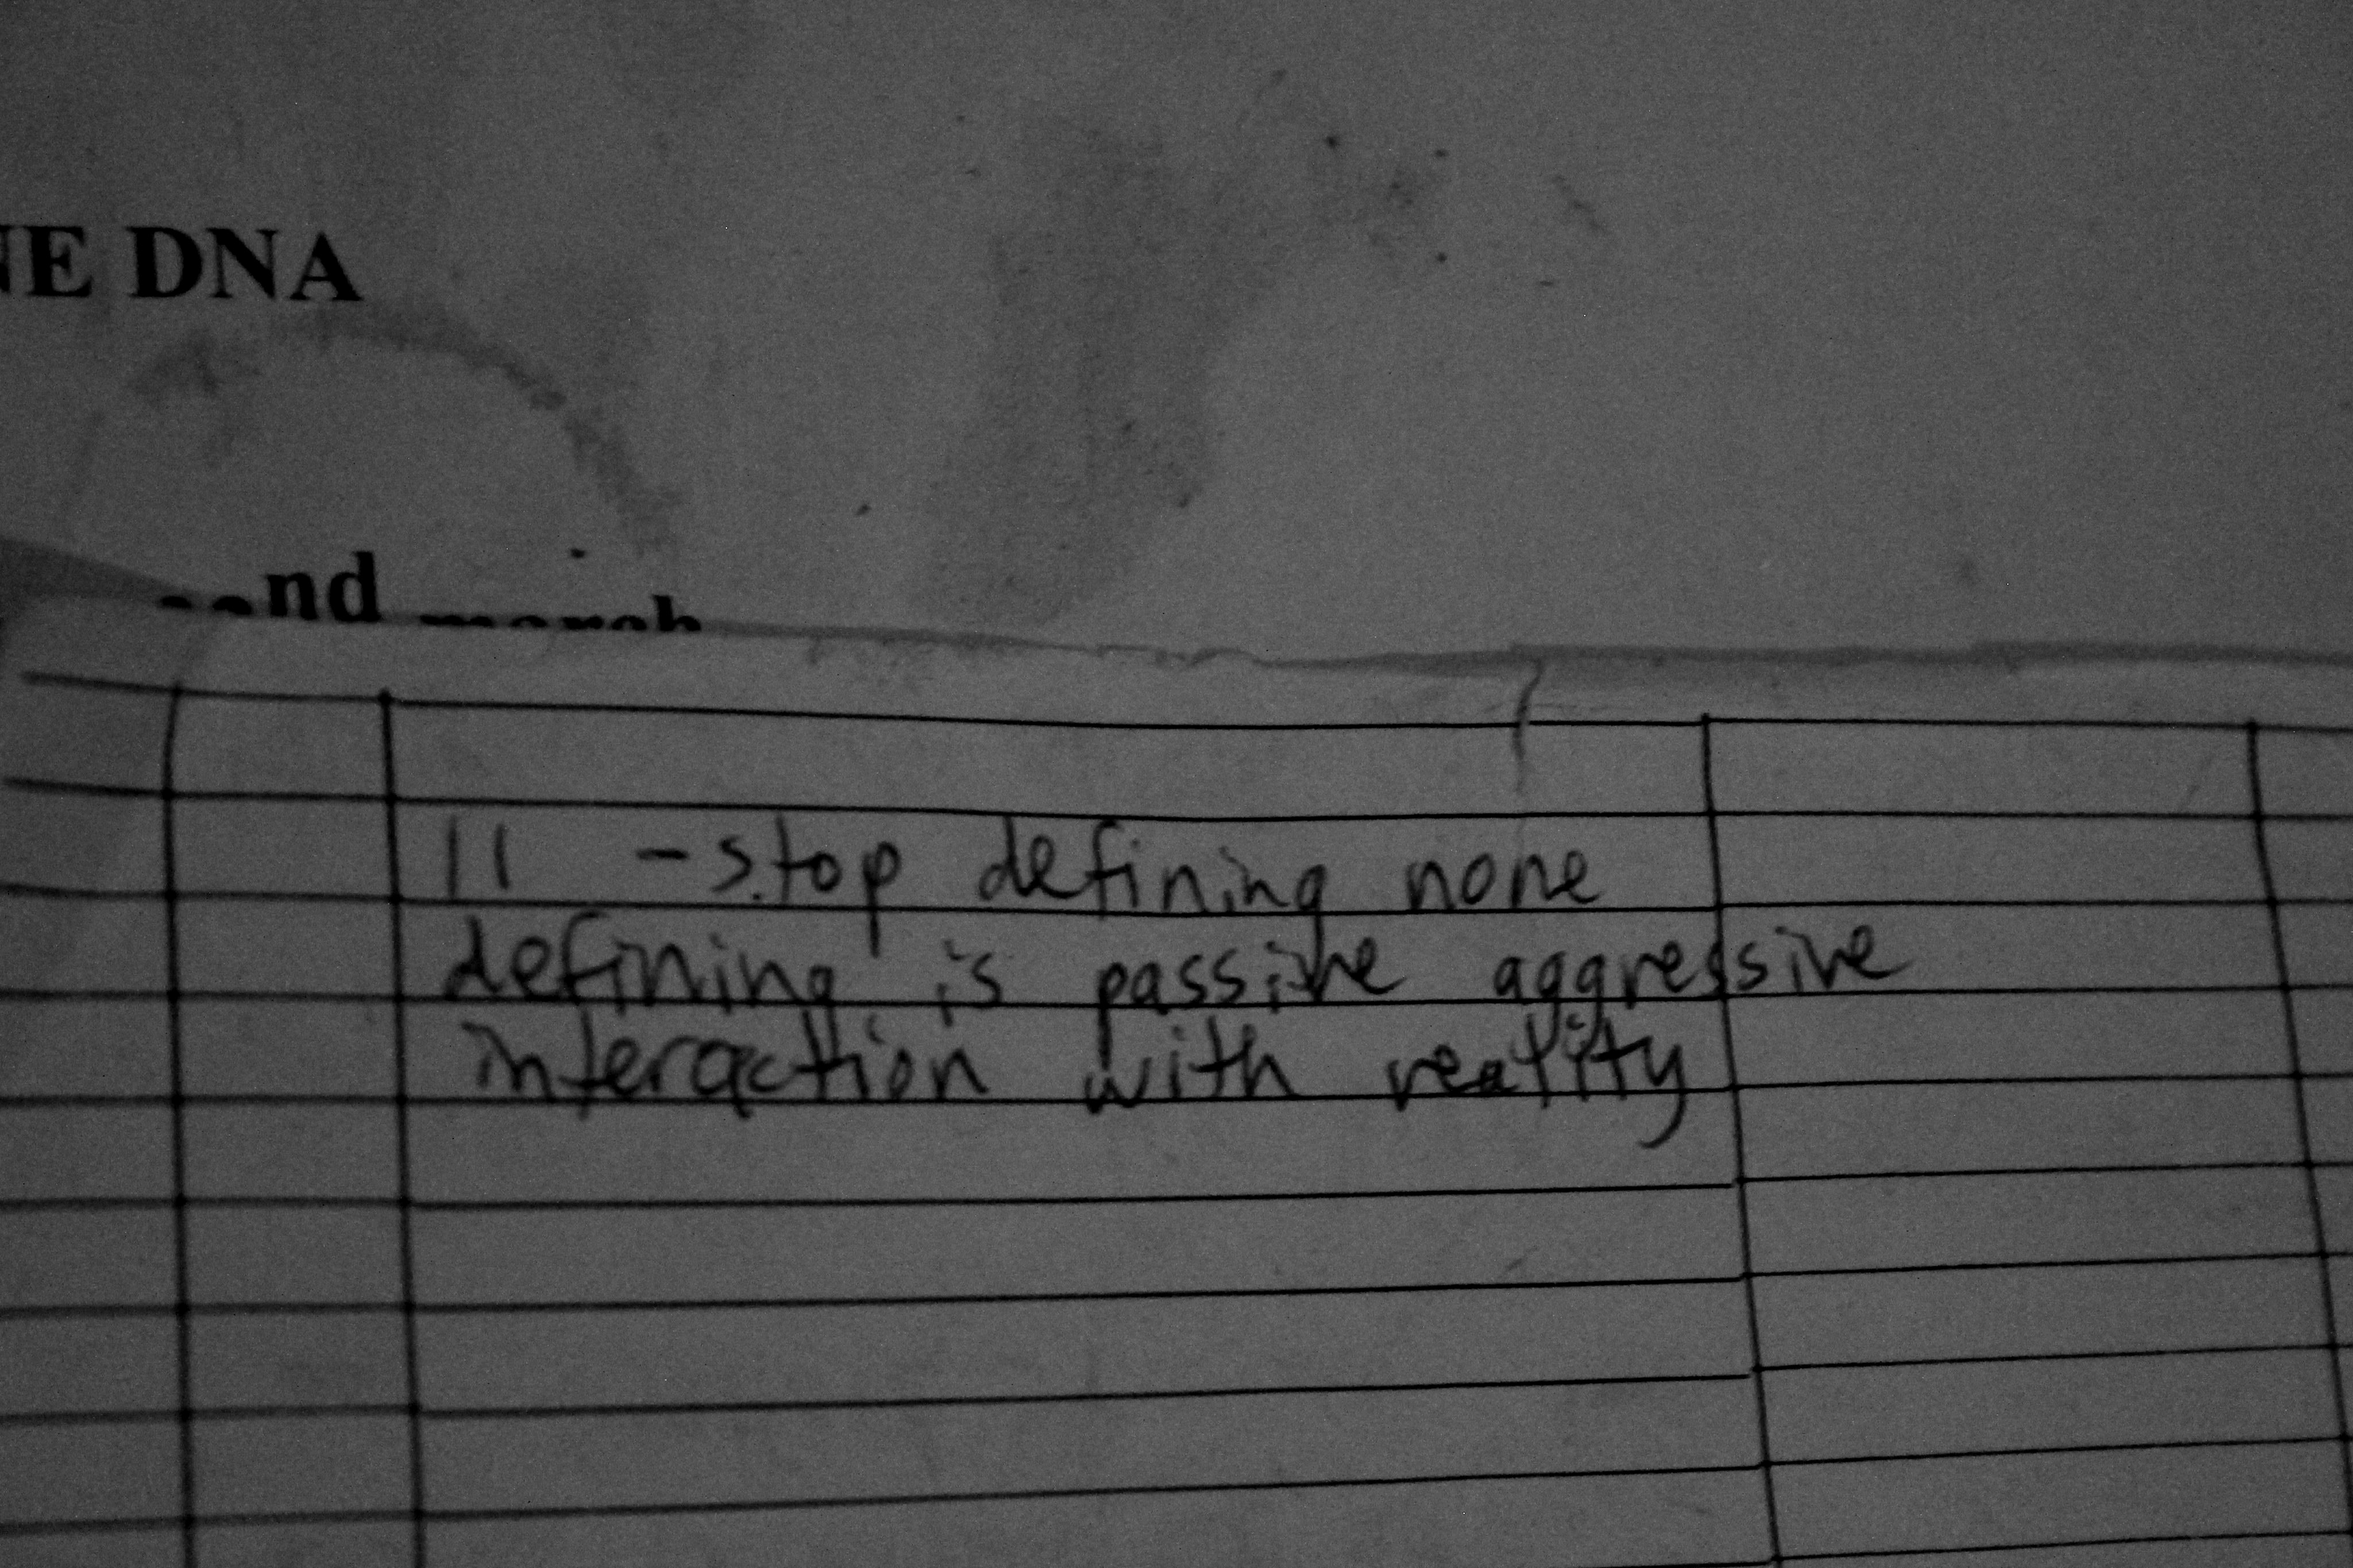 NE DNA
nd march
11 - stop defining none
defining is passive aggressive
interaction with reality